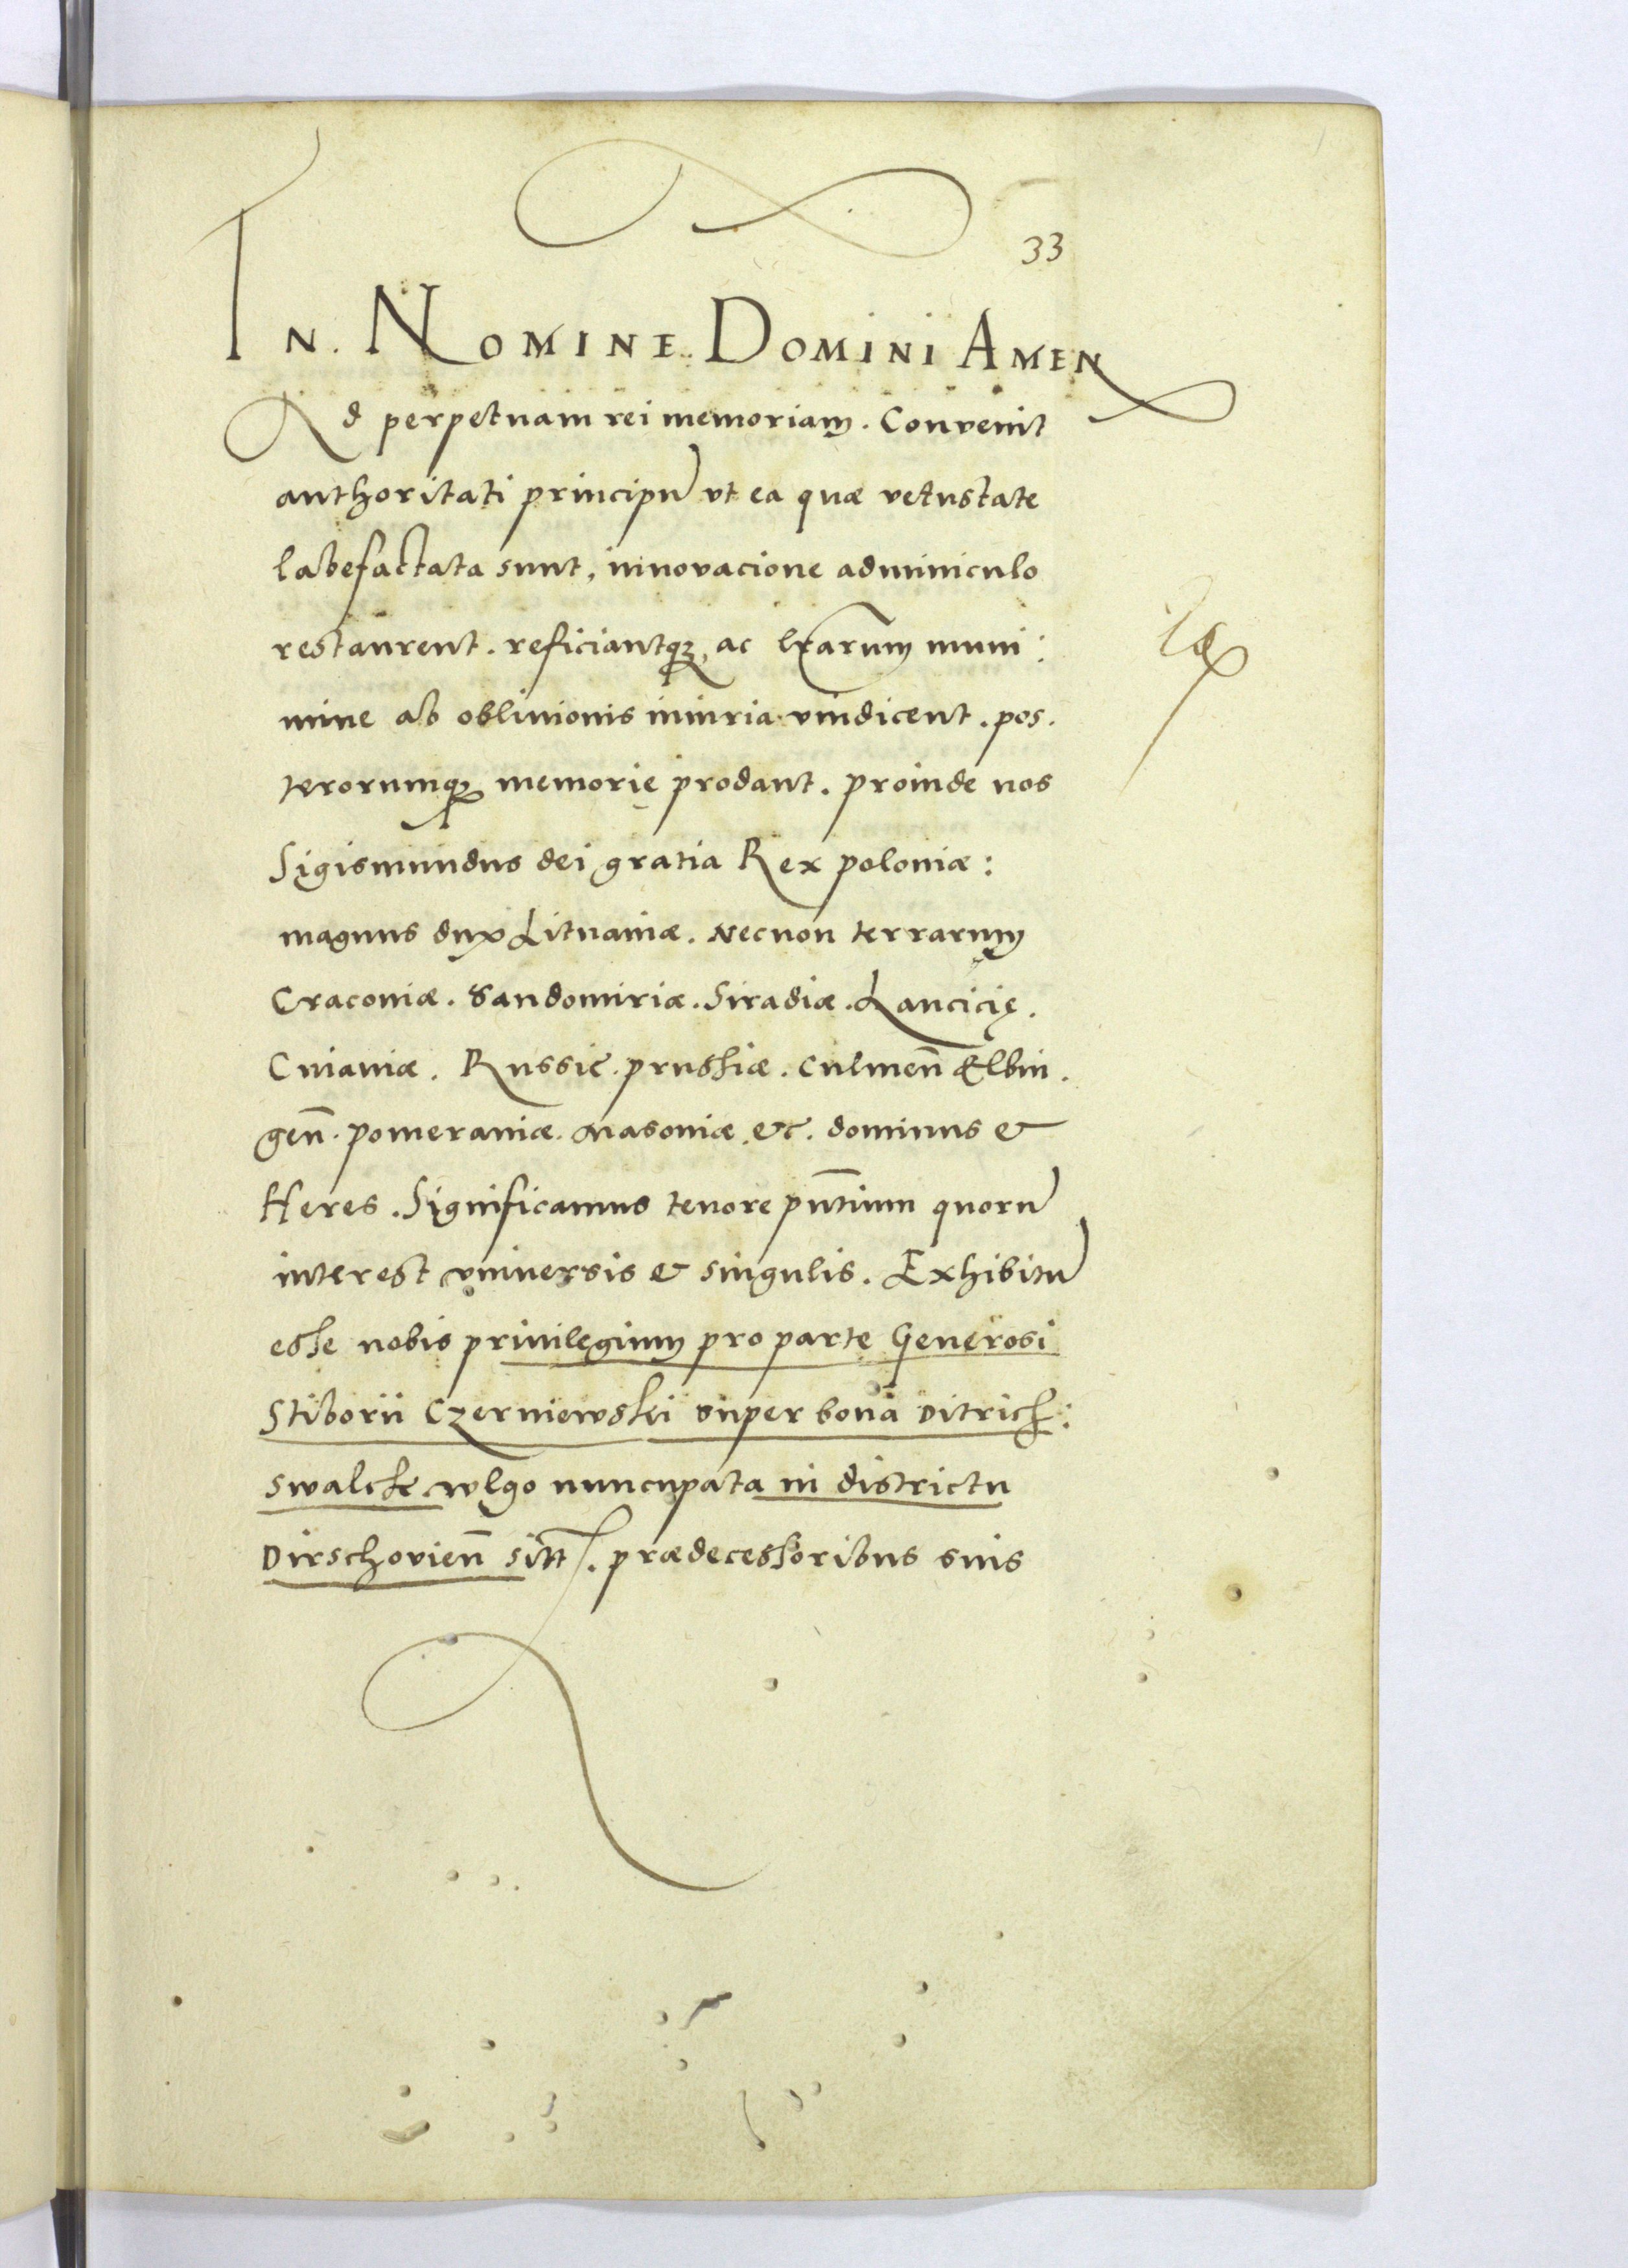 33
In. Nomine. Domini Amen
Ad perpetuam rei memoriam. Convenit
authoritati principū vt ea quæ vetustate
labefactata sunt, innovacione adminiculo
restaurent. reficiantqꝫ, ac lr̄arum muni:
mine ab obliuionis iniuria vindicent. pos.
terorumqꝫ memorię prodant. proinde nos
Sigismundus dei gratia Rex poloniæ:
magnus dux Lituaniæ. Necnon terrarum
Craconiæ. Sandomiriæ. Siradiæ. Lancicię.
Cuiauiæ. Russie. prussiæ. Culmen̄ Elbin.
gen̄. pomeraniæ. Masouiæ. &c. dominus &
Heres. Significamus tenore pn̄tium quorū
interest vniuersis & singulis. Exhibitū
esse nobis priuilegium pro parte Generosi
Stiborii Czerniewski super bona Ditrich:
swalde wlgo nuncupata in districtu
Dirschovien̄ sitt. prædecessoribus suis